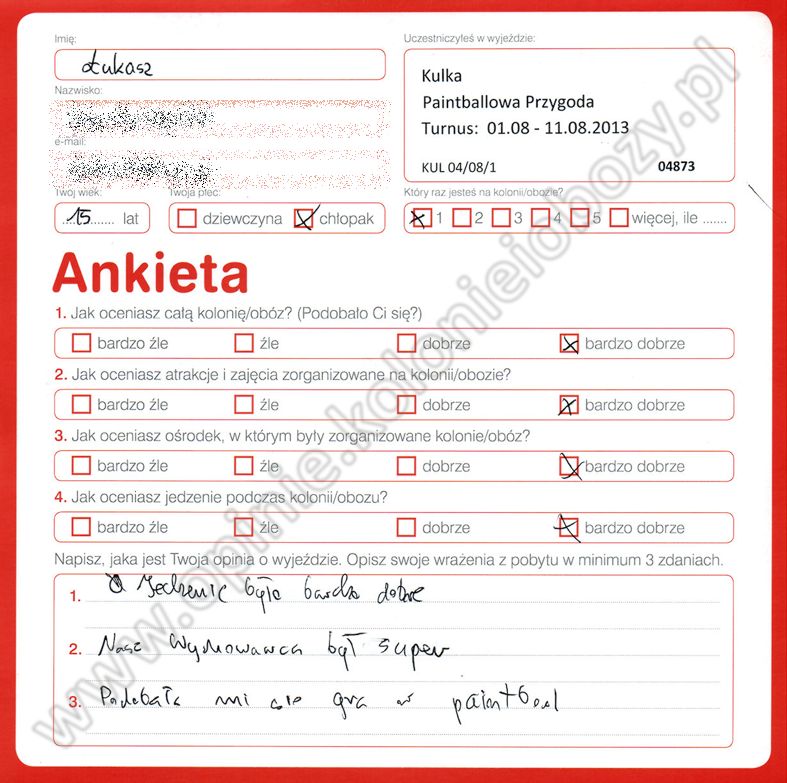 Imię:
Łukasz
Nazwisko:
e-mail:
Twój wiek:
15 lat
Twoja płeć:
dziewczyna chłopak
Uczestniczyłeś w wyjeździe:
Kulka
Paintballowa Przygoda
Turnus: 01.08 - 11.08.2013
KUL 04/08/1 04873
Który raz jesteś na kolonii/obozie?
1 2 3 4 5 więcej, ile .......
Ankieta
1. Jak oceniasz całą kolonię/obóz? (Podobało Ci się?)
bardzo źle źle dobrze bardzo dobrze
2. Jak oceniasz atrakcje i zajęcia zorganizowane na kolonii/obozie?
bardzo źle źle dobrze bardzo dobrze
3. Jak oceniasz ośrodek, w którym były zorganizowane kolonie/obóz?
bardzo źle źle dobrze bardzo dobrze
4. Jak oceniasz jedzenie podczas kolonii/obozu?
bardzo źle źle dobrze bardzo dobrze
Napisz, jaka jest Twoja opinia o wyjeździe. Opisz swoje wrażenia z pobytu w minimum 3 zdaniach.
1. Jedzenie było bardzo dobre
2. Nasz Wychowawca był super
3. Podobała mi sie gra w paintball
www.opinie.kolonieiobozy.pl